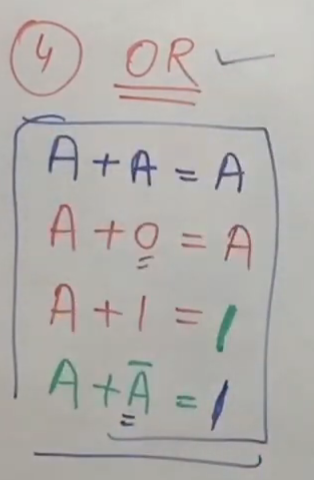 4 OR ✓
A + A = A
A + 0 = A
A + 1 = 1
A + Ā = 1